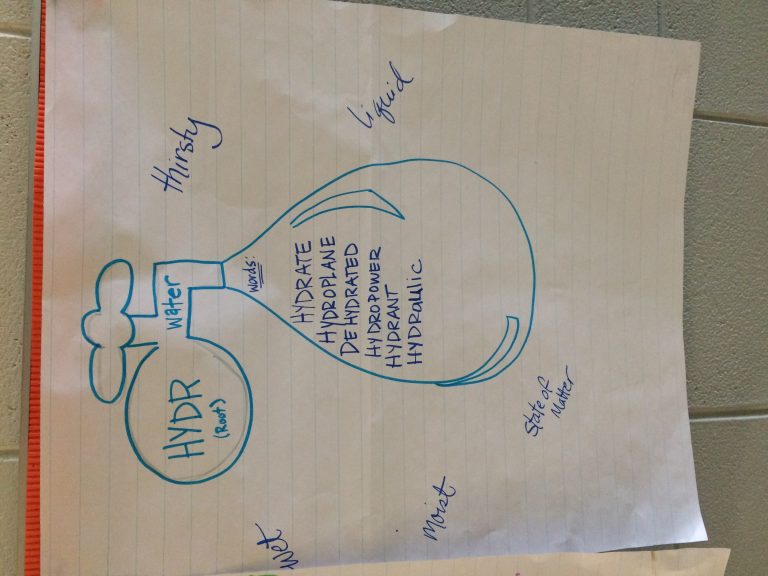 HYDR
(Root)
water
words:
HYDRATE
HYDROPLANE
DEHYDRATED
HYDROPOWER
HYDRANT
HYDRaulic
thirsty
liquid
wet
Moist
State of
Matter